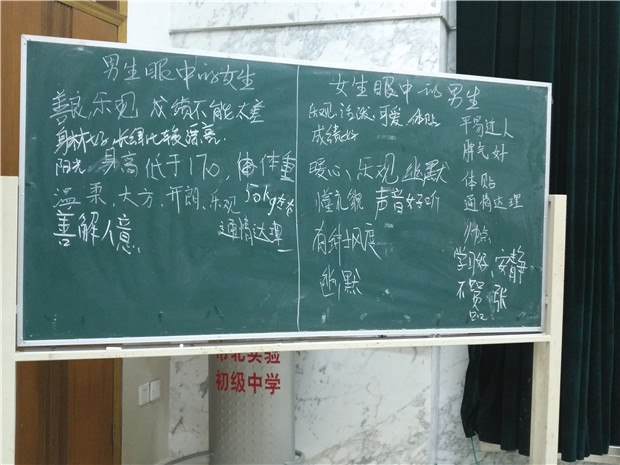 男生眼中的女生
善良乐观 成绩不能太差
身材好，长得比较漂亮.
阳光 身高低于170, 体重
50kg左右
温柔、大方、开朗、乐观
善解人意. 通情达理
女生眼中的男生
乐观 活泼 可爱 体贴
成绩好
暖心、乐观 幽默
懂礼貌 声音好听
有绅士风度
幽默
平易近人
脾气好
体贴
通情达理
帅点
学习好、安静
不嚣张
市北实验
初级中学